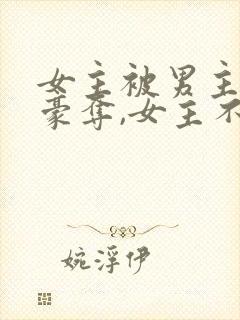 女主被男主
豪夺,女主不
婉浮伊